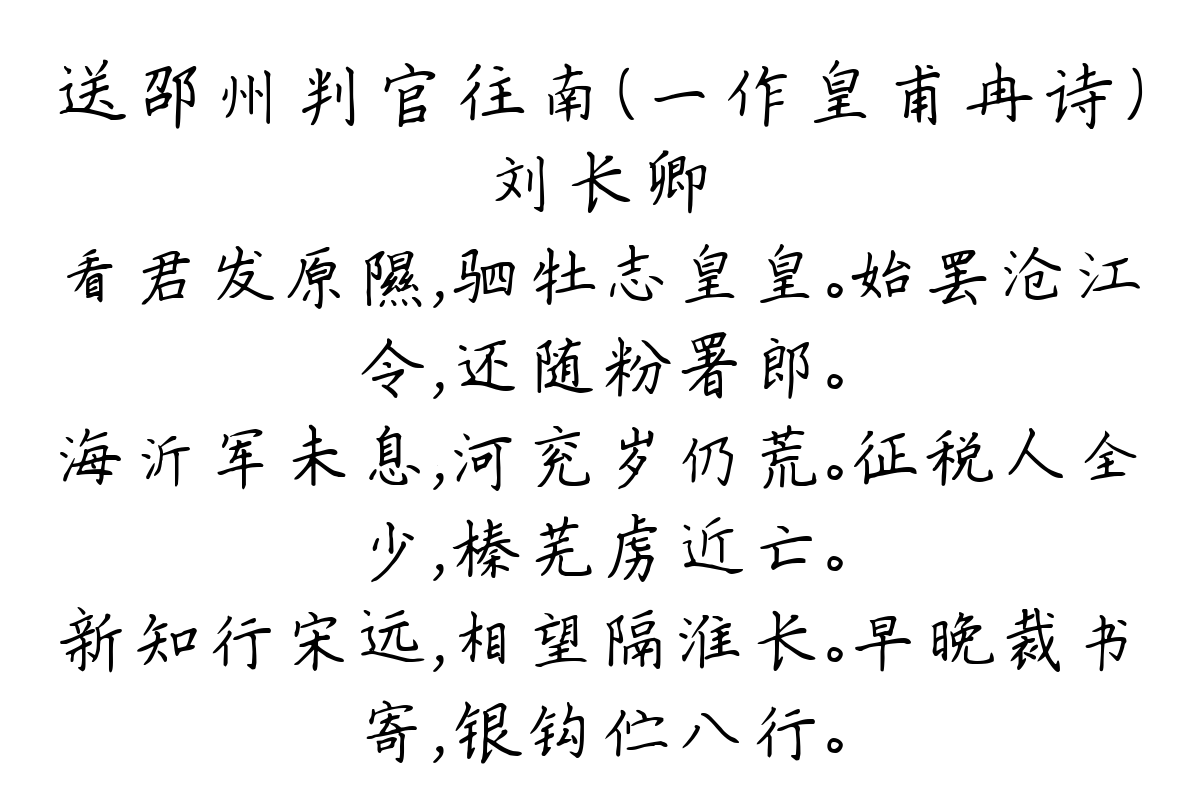 送邵州判官往南(一作皇甫冉诗)
刘长卿
看君发原隰,驷牡志皇皇。始罢沧江
令,还随粉署郎。
海沂军未息,河兖岁仍荒。征税人全
少,榛芜虏近亡。
新知行宋远,相望隔淮长。早晚裁书
寄,银钩伫八行。